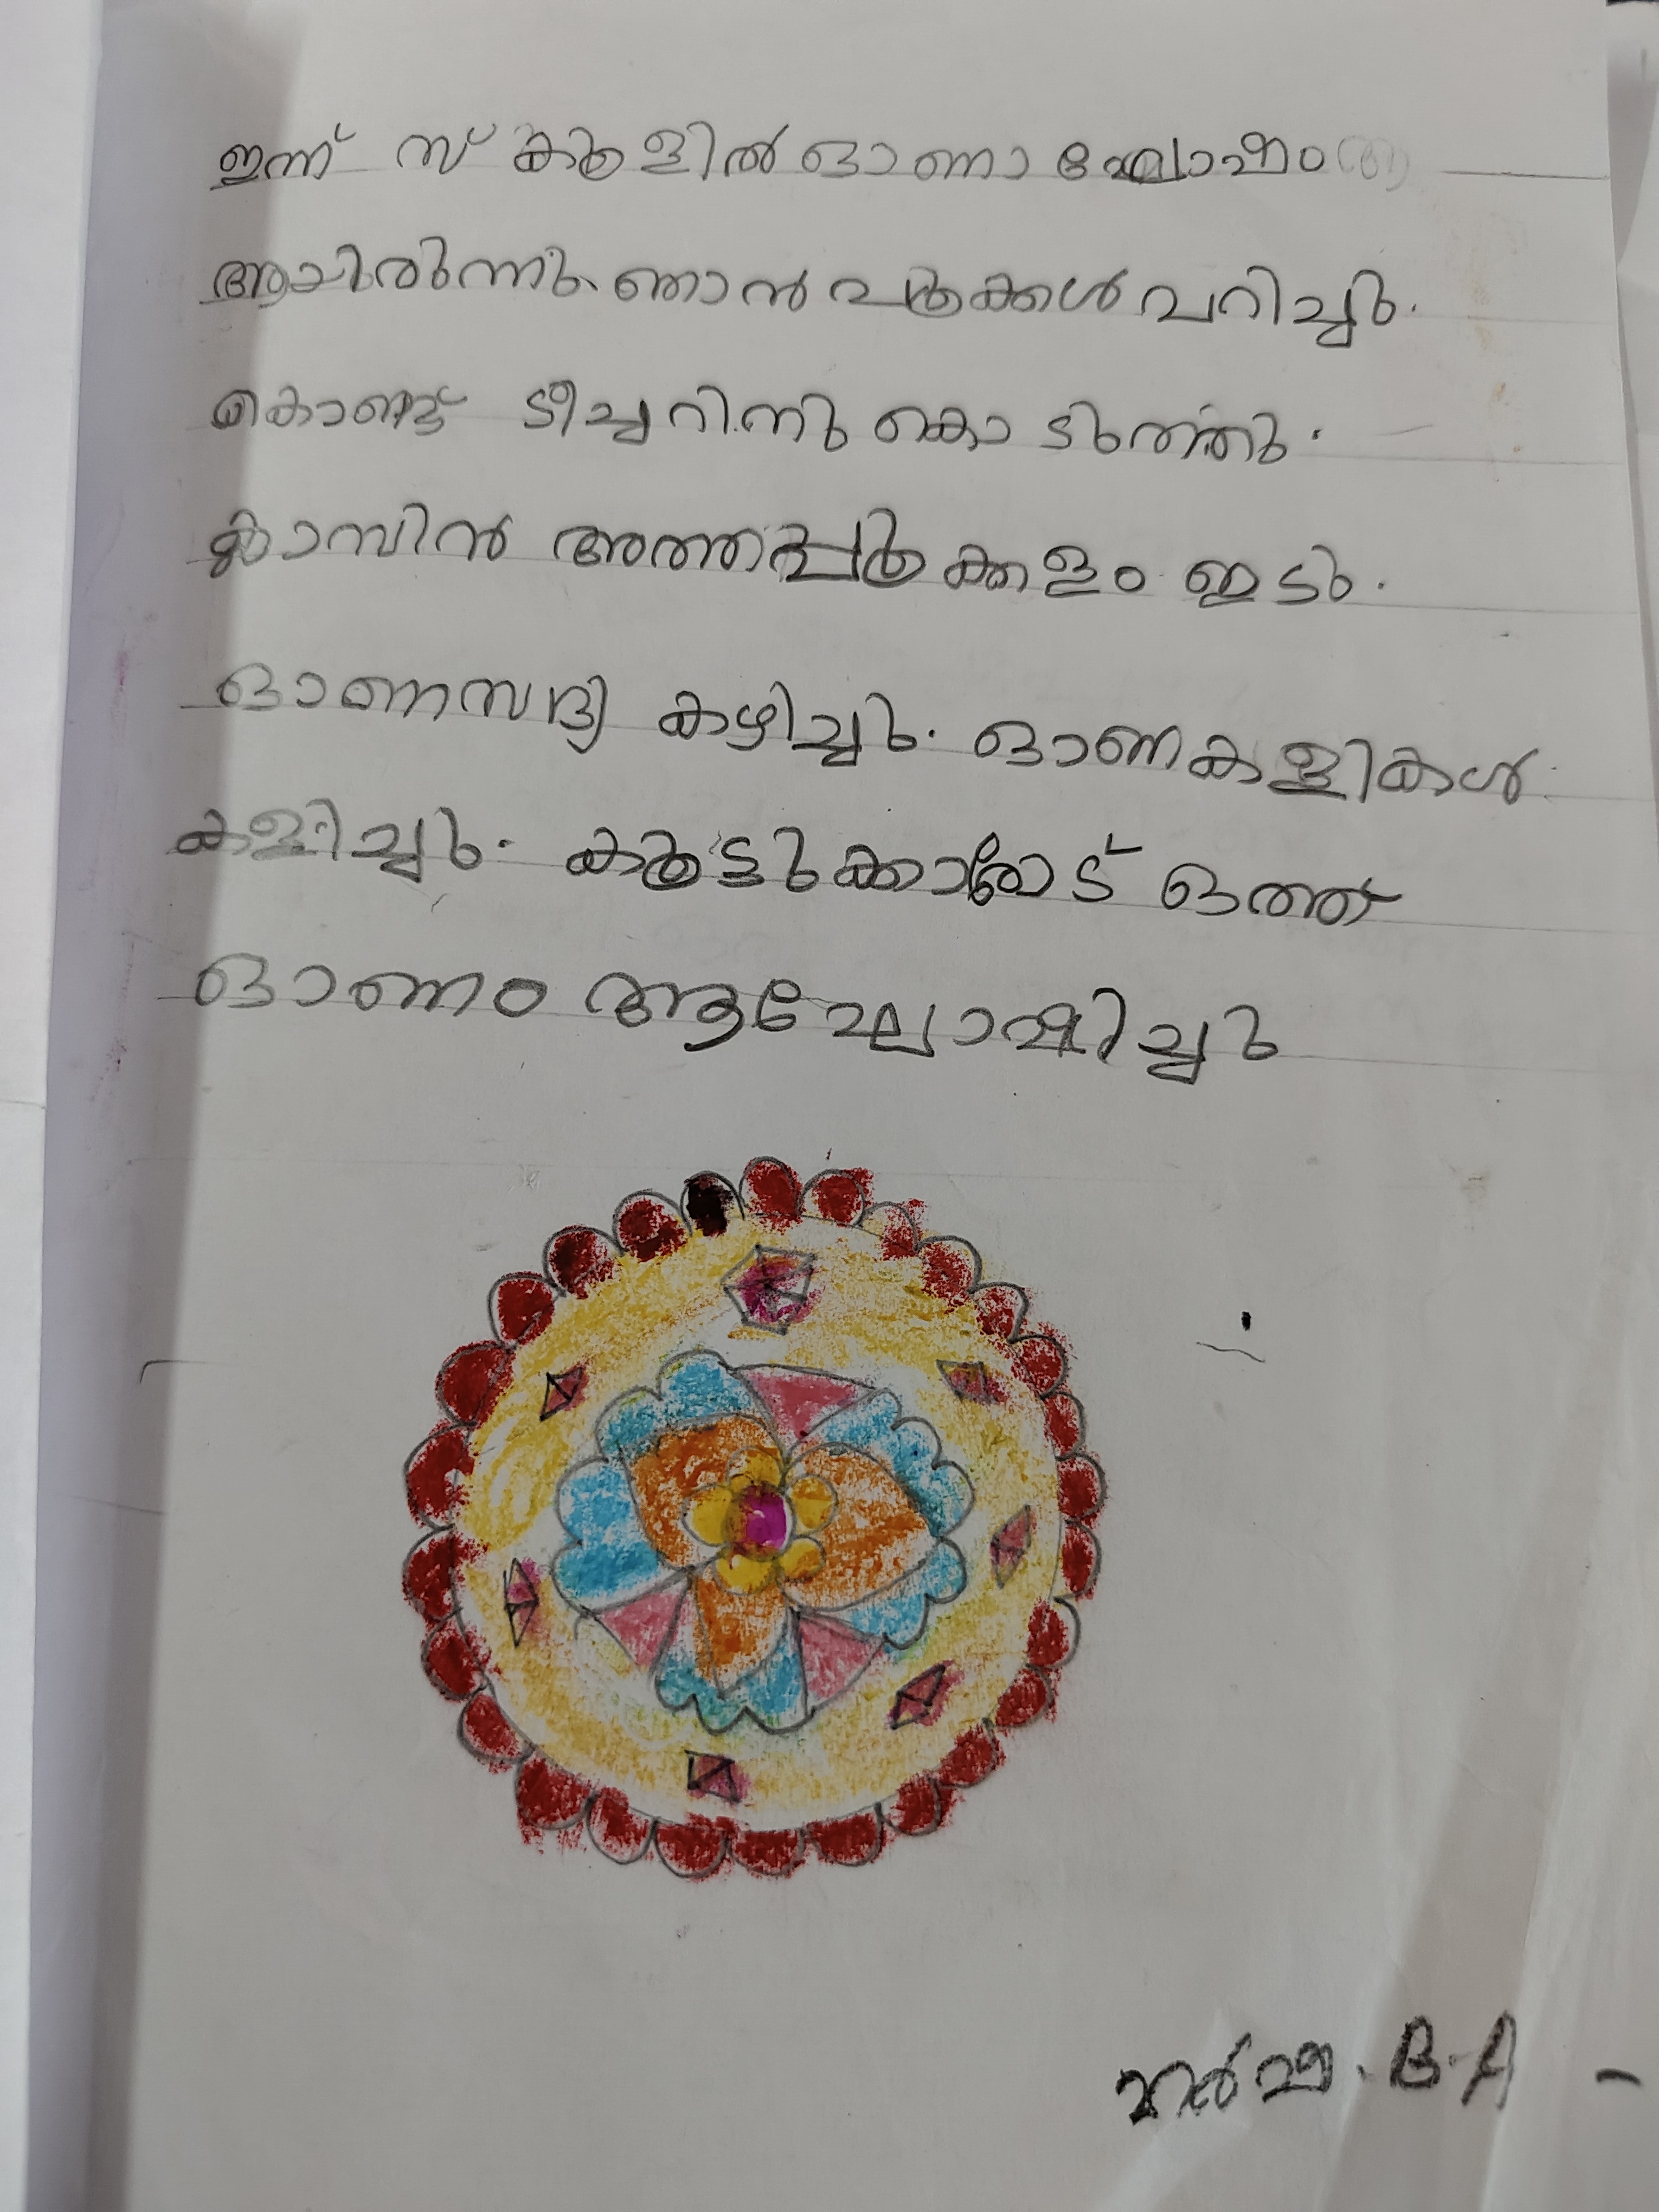 ഇന്ന് സ്കൂളിൽ ഓണാഘോഷം
ആയിരുന്നു. ഞാൻ പൂക്കൾ പറിച്ചു.
കൊണ്ട് ടീച്ചറിനു കൊടുത്തു.
ക്ലാസിൻ അത്തപ്പൂക്കളം ഇടു.
ഓണസദ്യ കഴിച്ചു. ഓണകളികൾ
കളിച്ചു. കൂട്ടുക്കാരോട് ഒത്ത്
ഓണം ആഘോഷിച്ചു
B.A